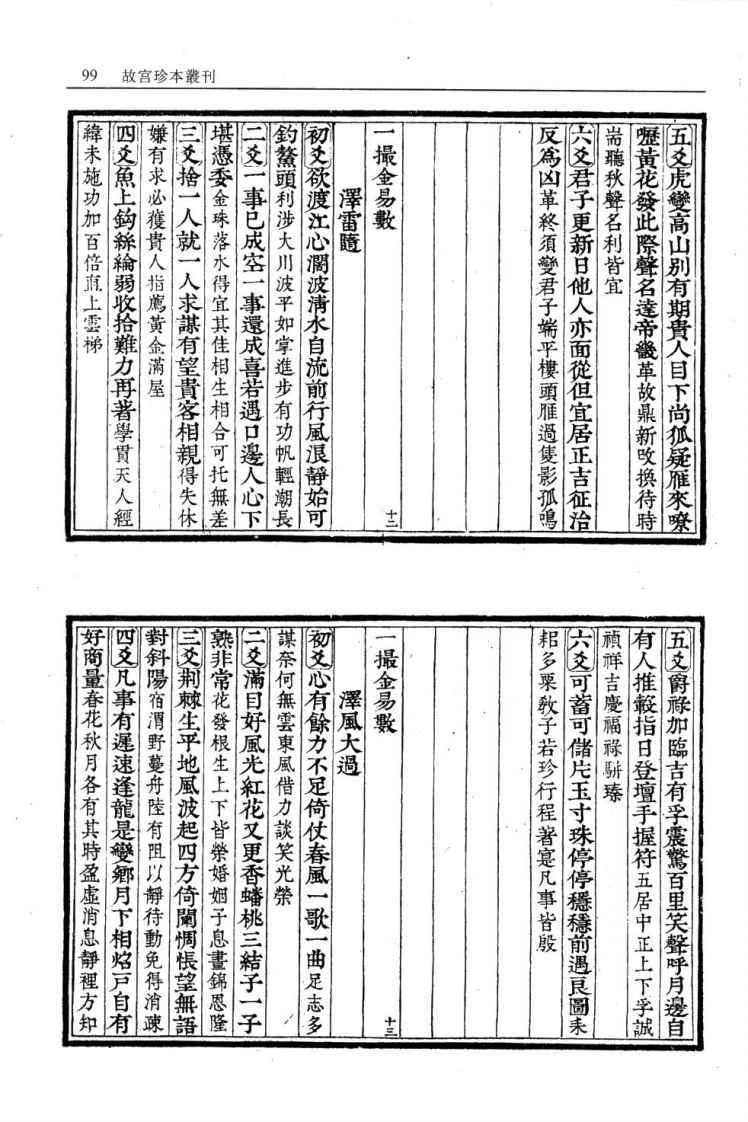 99 故宫珍本叢刊
五爻虎變高山別有期貴人目下尚狐疑雁來嘹
嚦黃花發此際聲名達帝畿革故鼎新改換待時
耑聽秋聲名利皆宜
六爻君子更新日他人亦面從但宜居正吉征治
反為凶革終須變君子端平樓頭雁過隻影孤鳴
十二
一撮金易數
澤雷隨
初爻欲渡江心濶波清水自流前行風浪靜始可
釣鰲頭利涉大川波平如掌進步有功帆輕潮長
二爻一事已成空一事還成喜若遇口邊人心下
堪憑委金珠落水得宜其佳相生相合可托無差
三爻捨一人就一人求謀有望貴客相親得失休
嫌有求必獲貴人指薦黃金滿屋
四爻魚上鈎絲綸弱收拾難力再著學貫天人經
緯未施功加百倍直上雲梯
五爻爵祿加臨吉有孚震驚百里笑聲呼月邊自
有人推轂指日登壇手握符五居中正上下孚誠
禎祥吉慶福祿駢臻
六爻可蓄可儲片玉寸珠停停穩穩前遇良圖耒
耜多栗教子若珍行程著寔凡事皆殷
十三
一撮金易數
澤風大過
初爻心有餘力不足倚仗春風一歌一曲足志多
謀奈何無雲東風借力談笑光榮
二爻滿目好風光紅花又更香蟠桃三結子一子
熟非常花發根生上下皆榮婚姻子息晝錦恩隆
三爻荆棘生平地風波起四方倚闌惆悵望無語
對斜陽宿渭野蔓舟陸有阻以靜待動免得消疎
四爻凡事有遲速逢龍是變鄉月下相焰戸自有
好商量春花秋月各有其時盈虛消息靜裡方知